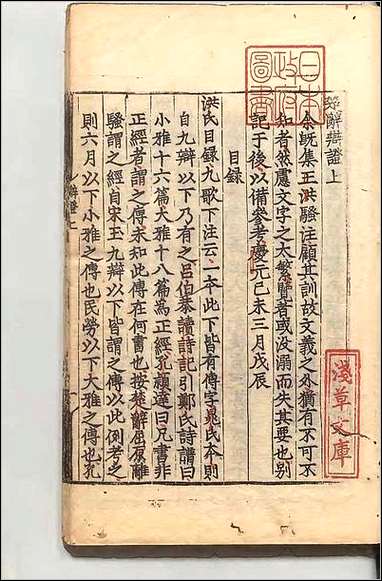 楚辭辯證上
余既集王洪騷注顧其訓故文義之外猶有不可不
知者然慮文字之太繁覽者或沒溺而失其要也別
記于後以備參考慶元己未三月戊辰
目録
洪氏目録九歌下注云一本此下皆有傳字晁氏本則
自九辯以下乃有之呂伯恭讀詩記引鄭氏詩譜曰
小雅十六篇大雅十八篇為正經孔穎達曰凡書非
正經者謂之傳未知此傳在何書也按楚辭屈原離
騷謂之經自宋玉九辯以下皆謂之傳以此例考之
則六月以下小雅之傳也民勞以下大雅之傳也孔
辯證上
日本
政府
圖書
淺草文庫